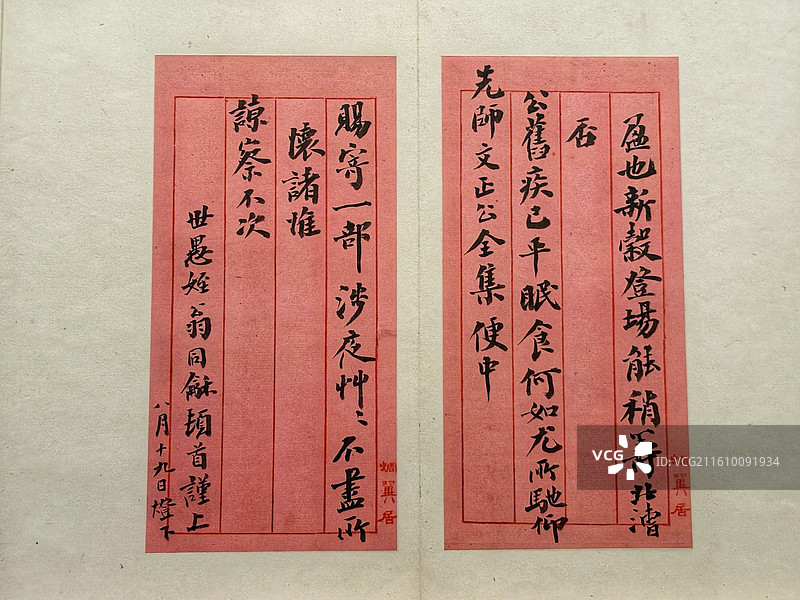 盈也新穀登場能稍算北漕
否
公舊疾已平眠食何如尤所馳仰
先師文正公全集便中
賜寄一部涉夜艸〻不盡所
懷諸惟
諒察不次
世愚姪翁同龢頓首謹上
八月十九日燈下
巽居
巽居
VCG
VCG ID:VCG211610091934